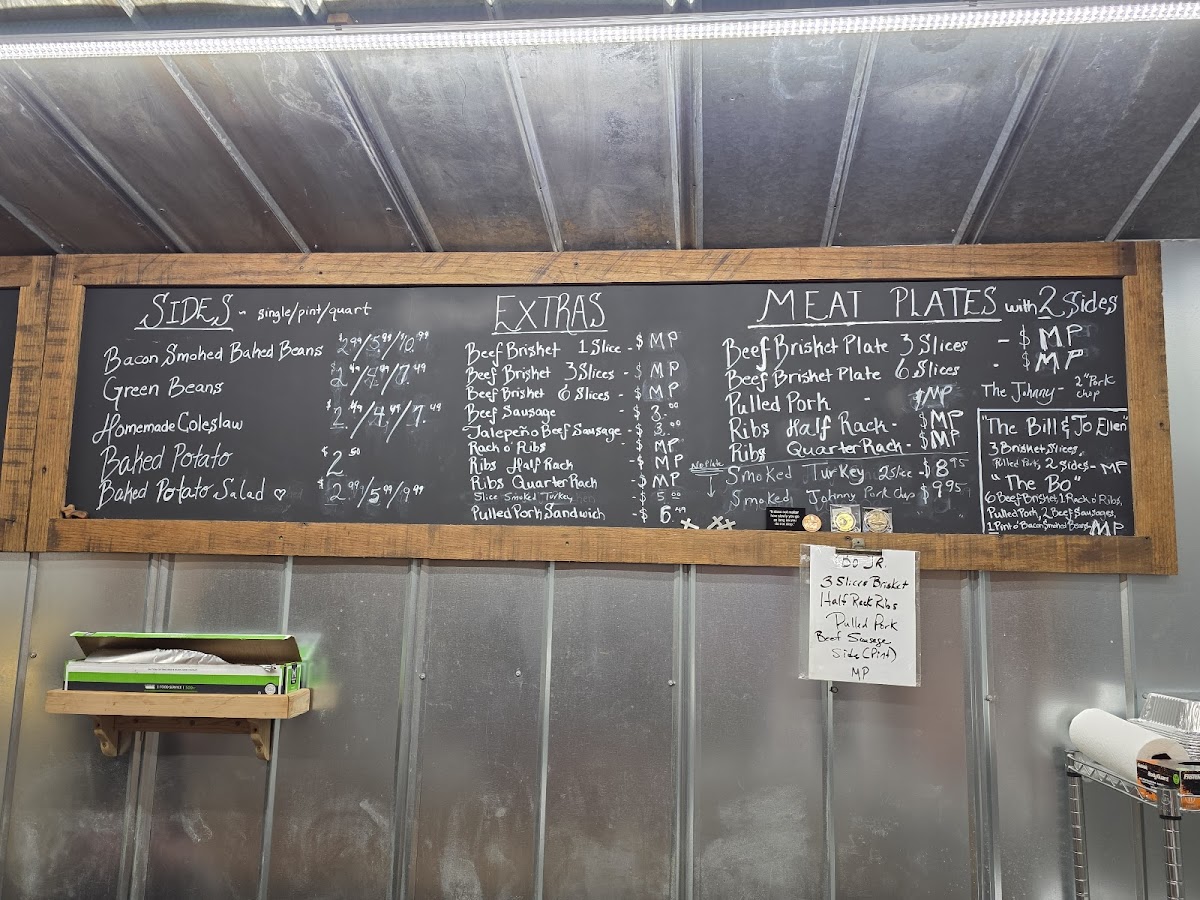 SIDES - single/pint/quart
Bacon Smoked Baked Beans $2.99/5.99/10.99
Green Beans $2.49/4.49/7.49
Homemade Coleslaw $2.49/4.49/7.49
Baked Potato $2.50
Baked Potato Salad ♡ $2.99/5.99/9.99
EXTRAS
Beef Brisket 1 Slice - $ MP
Beef Brisket 3 Slices - $ MP
Beef Brisket 6 Slices - $ MP
Beef Sausage - $ 3.00
Jalepeño Beef Sausage - $ 3.00
Rack o' Ribs - $ MP
Ribs Half Rack - $ MP
Ribs Quarter Rack - $ MP
Slice Smoked Turkey - $ 5.00
Pulled Pork Sandwich - $ 6.49
MEAT PLATES with 2 Sides
Beef Brisket Plate 3 Slices - $ MP
Beef Brisket Plate 6 Slices - $ MP
Pulled Pork - $MP
Ribs Half Rack - $MP
Ribs Quarter Rack - $MP
No Plate
Smoked Turkey 2 Slice - $8.95
Smoked Johnny Pork Chop $9.95
The Johnny - 2" Pork
Chop
"The Bill & Jo Ellen"
3 Brisket Slices,
Pulled Pork, 2 Sides - MP
"The Bo"
6 Beef Brisket, 1 Rack o' Ribs,
Pulled Pork, 2 Beef Sausages,
1 Pint o' Bacon Smoked Beans - MP
BO JR.
3 Slices Brisket
Half Rack Ribs
Pulled Pork
Beef Sausage
Side (Pint)
MP